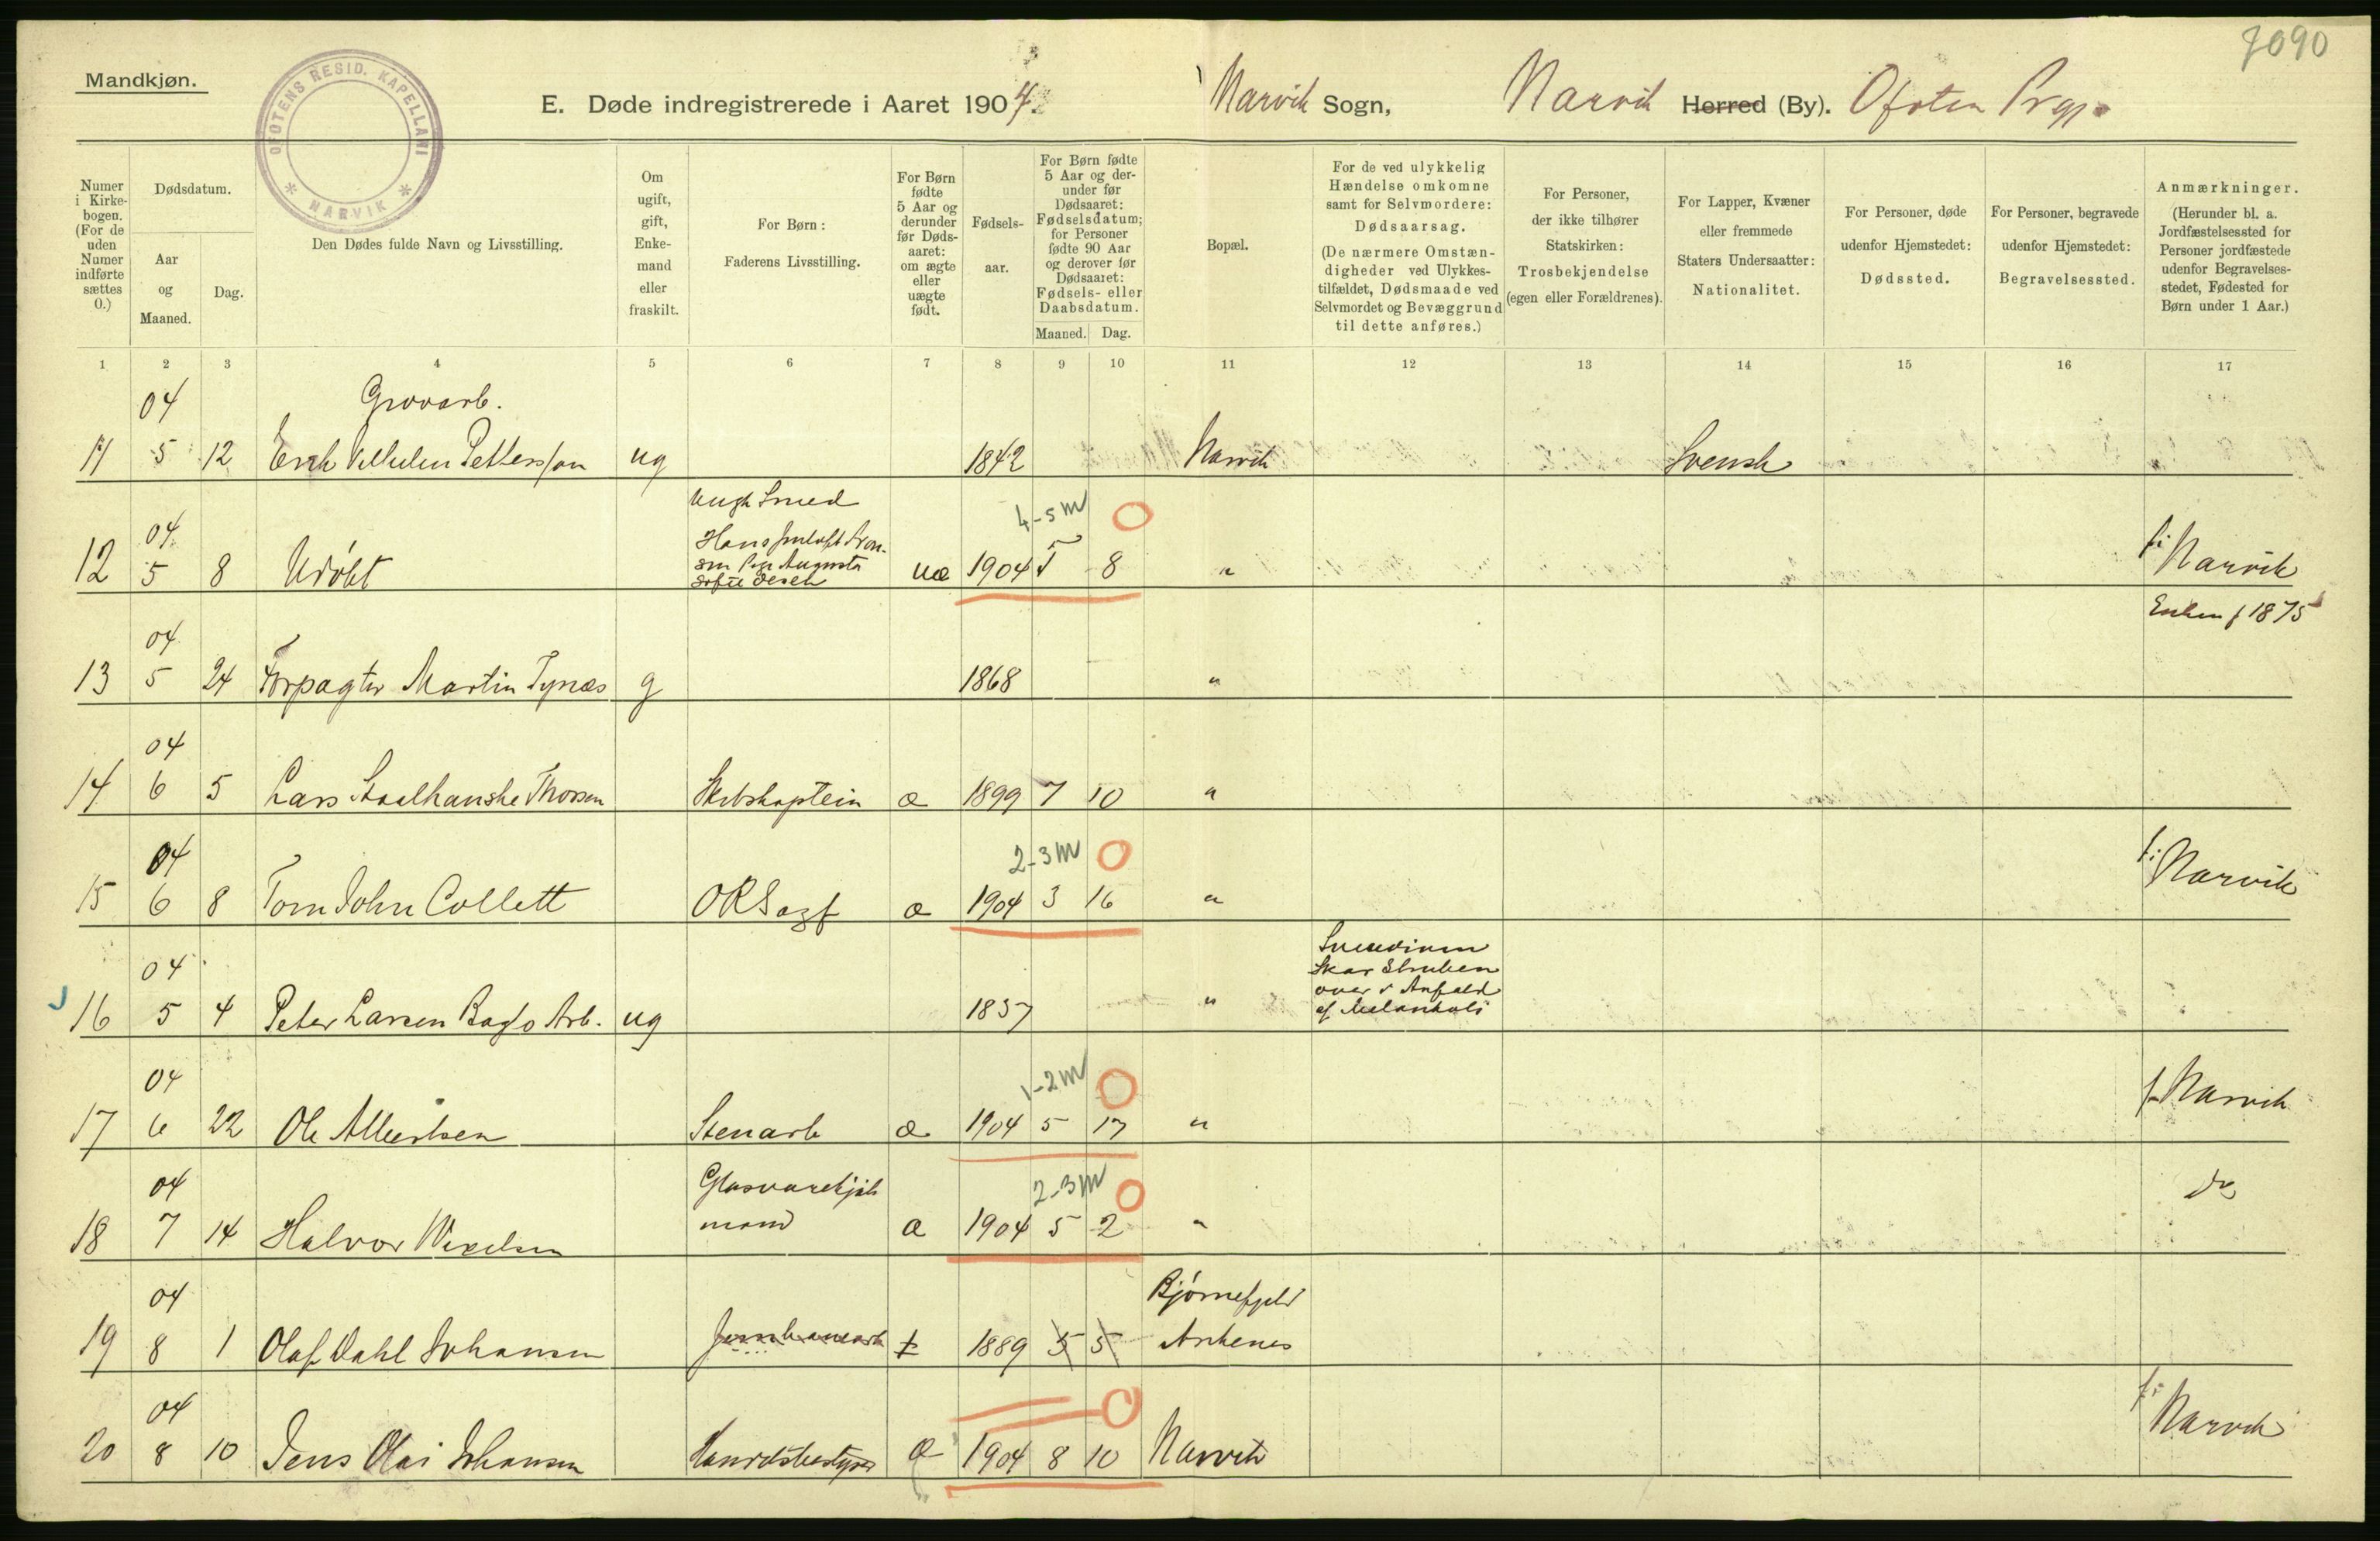 7090
Mandkjøn.
OFOTENS RESID. KAPELLANI
* NARVIK *
E. Døde indregistrerede i Aaret 1904.
Narvik Sogn,
Narvik Herred (By). Ofoten Prgj.
Numer i Kirke-bogen. (For de uden Numer indførte sættes 0.)
Dødsdatum.
Aar og Maaned.
Dag.
Den Dødes fulde Navn og Livsstilling.
Om ugift, gift, Enke-mand eller fraskilt.
For Børn:
Faderens Livsstilling.
For Børn fødte 5 Aar og derunder før Døds-aaret: om ægte eller uægte født.
Fødsels-aar.
For Børn fødte 5 Aar og der-under før Dødsaaret: Fødselsdatum; for Personer fødte 90 Aar og derover før Dødsaaret: Fødsels- eller Daabsdatum.
Maaned. Dag.
Bopæl.
For de ved ulykkelig Hændelse omkomne samt for Selvmordere: Dødsaarsag.
(De nærmere Omstæn-digheder ved Ulykkes-tilfældet, Dødsmaade ved Selvmordet og Bevæggrund til dette anføres.)
For Personer, der ikke tilhører Statskirken: Trosbekjendelse (egen eller Forældrenes).
For Lapper, Kvæner eller fremmede Staters Undersaatter: Nationalitet.
For Personer, døde udenfor Hjemstedet: Dødssted.
For Personer, begravede udenfor Hjemstedet: Begravelsessted.
Anmærkninger.
(Herunder bl. a. Jordfæstelsessted for Personer jordfæstede udenfor Begravelses-stedet, Fødested for Børn under 1 Aar.)
1 2 3 4 5 6 7 8 9 10 11 12 13 14 15 16 17
04 Grovarb.
11 5 12 Erik Vilhelm Pettersson ug 1842 Narvik Svensk
Ungk Smed
4-5 m O
04 Hans
12 5 8 Udøbt Augusta uæ 1904 5 8 " f. i Narvik
Enken f 1875
04
13 5 24 Forpagter Martin Tynæs g 1868 "
04
14 6 5 Lars Staalhanske Thorsen Skibskaptein æ 1899 7 10 "
04 2-3 m O
15 6 8 Tom John Collett æ 1904 3 16 " f. i Narvik
04 Suicidium
Skar Struben
over i Anfald
16 5 4 Peter Larsen Arb. ug 1837 " af Melankoli
04 1-2 m O
17 6 22 Ole Albertsen Stenarb æ 1904 5 17 " f. Narvik
04 2-3 m O do
18 7 14 Halvor Wexelsen mand æ 1904 5 2 "
04 Bjørnefjeld
19 8 1 Olaf Dahl Johansen 1889 5 5 Ankenes
04 O
20 8 10 Jens Olai Johansen æ 1904 8 10 Narvik f. i Narvik